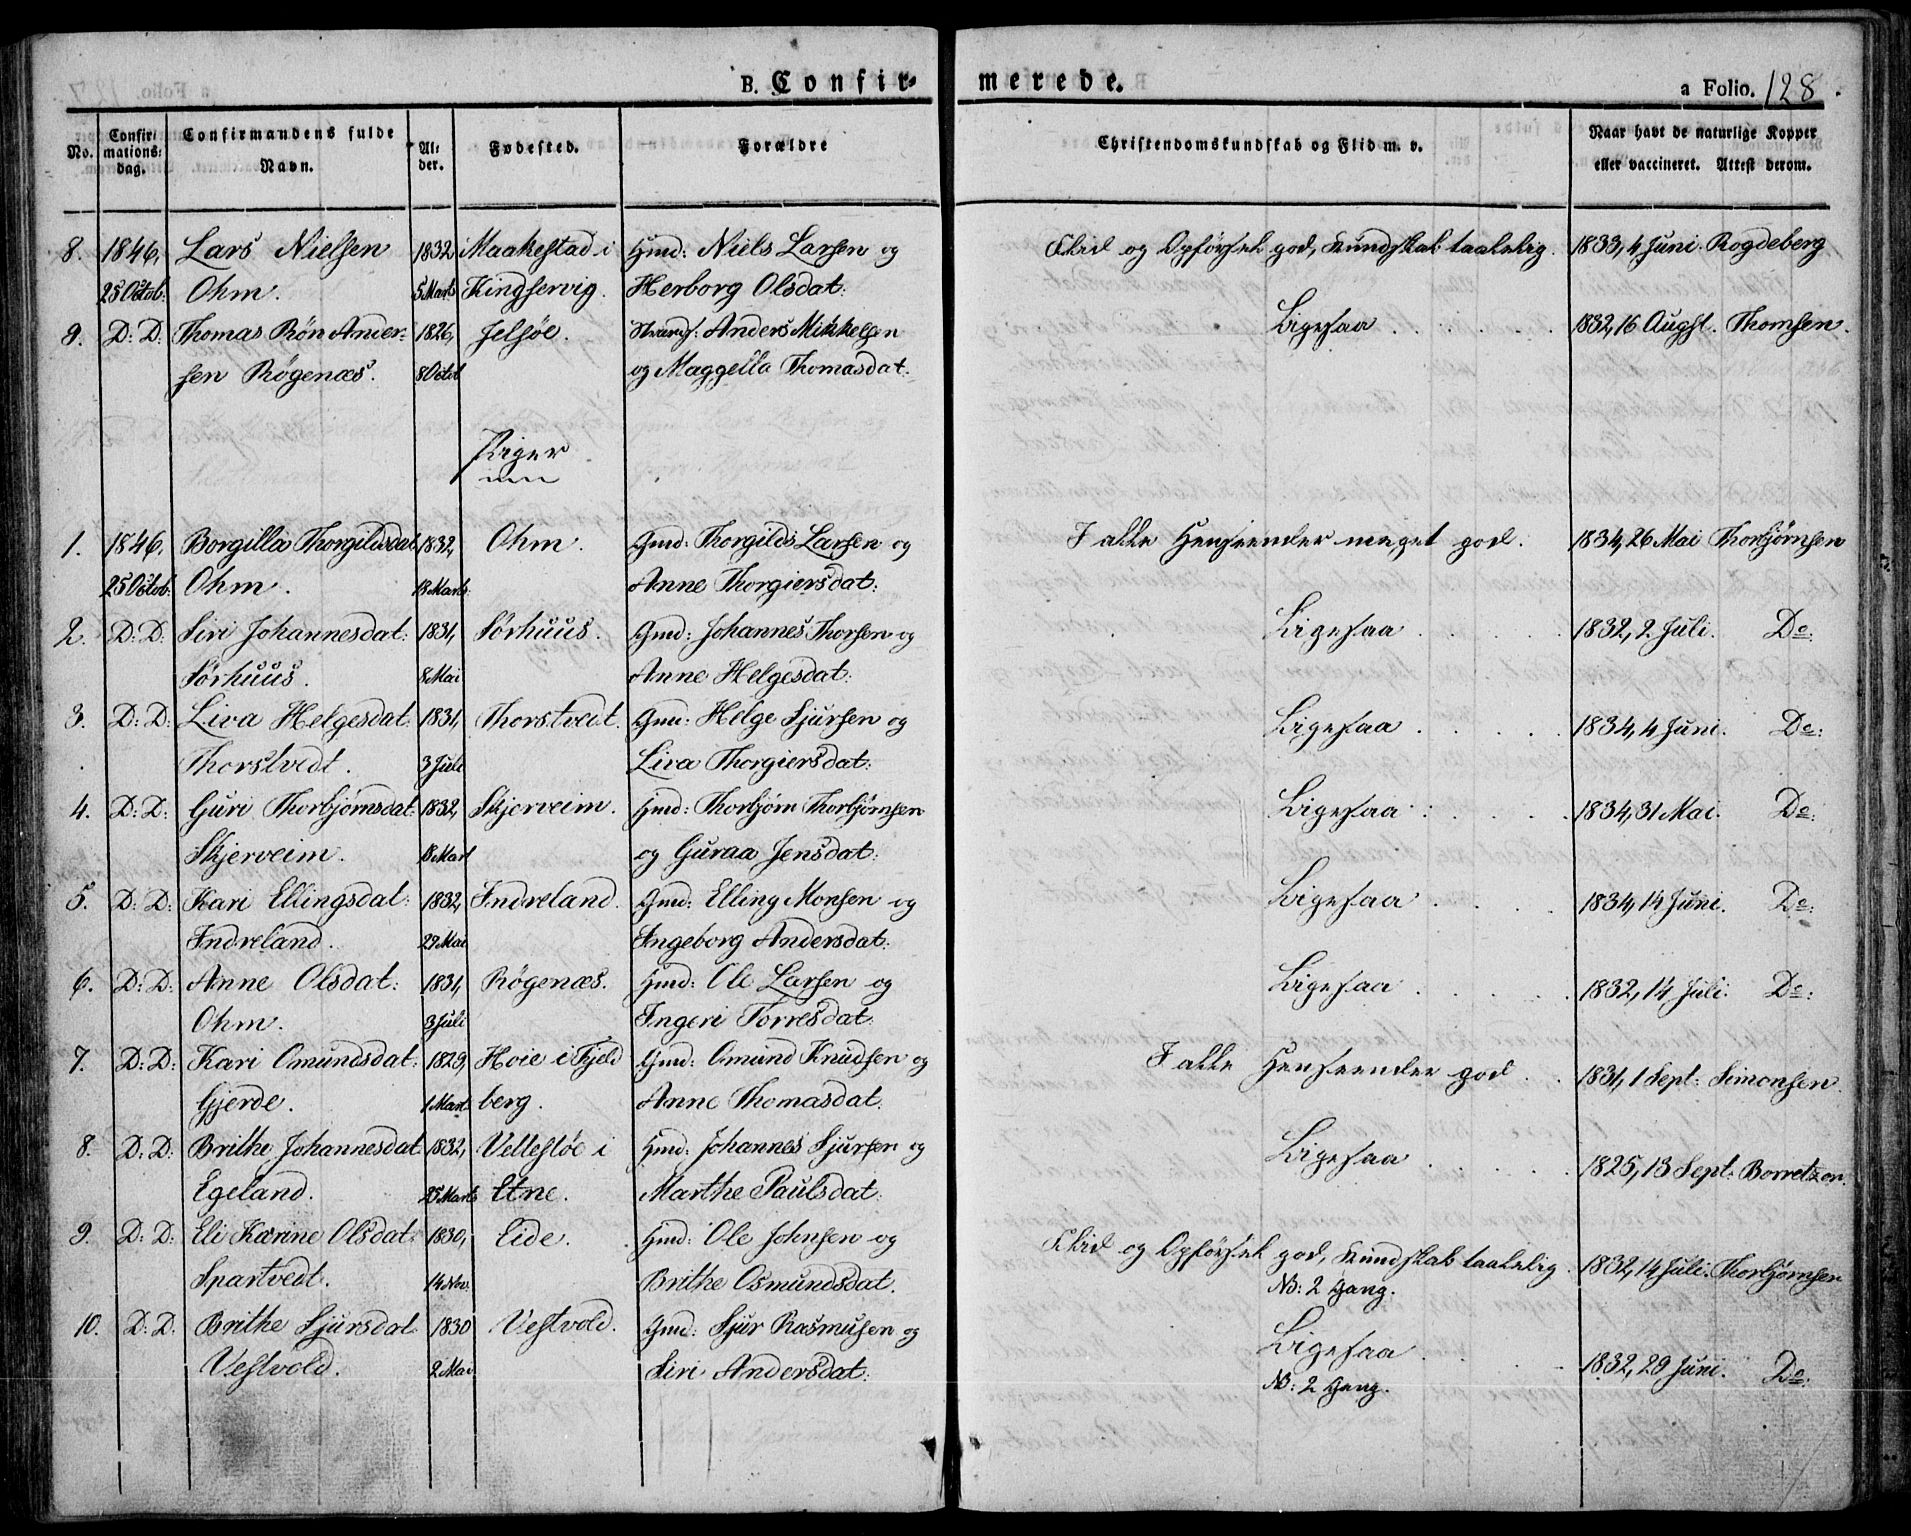 B. Confir-
merede.
a Folio. 128.
No. Confirmations-dag. Confirmandens fulde Navn. Alder. Fødested. Forældre Christendomskundskab og Flid m. v. Naar havt de naturlige Kopper eller vaccineret. Attest derom.
8. 1846, Lars Nielsen 1832 Maakestad i Hmd: Niels Larsen og Flid og Opførsel god, Kundskab taalelig. 1833, 4 Juni. Rogdeberg
25 Octob: Ohm. 5 Marts Kingservig. Herborg Olsdat:
9. D: D. Thomas Røn Ander- 1826, Jelsøe. Anders Mikkelsen Ligesaa 1832, 16 Augst. Thomsen.
sen Røgenæs. 8 Octob og Maggella Thomasdat:
Piger
1. 1846, Borgilla Thorgilsdat 1832, Ohm. Gmd: Thorgilds Larsen og I alle Henseender meget god. 1834, 26 Mai Thorbjørnsen
25 Octob: Ohm. 18 Marts Anne Thorgiersdat:
2. D: D: Siri Johannesdat: 1831, Sørhuus. Gmd: Johannes Thorsen og Ligesaa 1832, 2 Juli. Do:
Sørhuus. 8 Mai Anne Helgesdat:
3. D: D: Liva Helgesdat 1831, Thorstvedt. Gmd: Helge Sjursen og Ligesaa 1834, 4 Juni. Do:
Thorstvedt. 3 Juli Liva Thorgiersdat:
4. D: D: Guri Thorbjørnsdat 1832, Skjerveim. Hmd: Thorbjørn Thorbjørnsen Ligesaa 1834, 31 Mai. Do:
Skjerveim. 18 Mart og Guraa Jensdat:
5. D: D: Kari Ellingsdat: 1832, Indreland. Gmd: Elling Monsen og Ligesaa 1834, 14 Juni. Do:
Indreland. 29 Mai Ingeborg Andersdat:
6. D: D: Anne Olsdat: 1831, Røgenæs. Hmd: Ole Larsen og Ligesaa 1832, 14 Juli. Do:
Ohm. 3 Juli Ingeri Torresdat:
7. D: D: Kari Omundsdat: 1829, Hoie i Fjeld Gmd: Omund Knudsen og I alle Henseender god. 1831, 1 Sept: Simonsen.
Gjerde. 1 Mart berg. Anne Thomasdat:
8. D: D: Brithe Johannesdat 1832, Vellestøe i Hmd: Johannes Sjursen og Ligesaa 1825, 13 Sept: Borretzen.
Egeland. 25 Marts Etne. Marthe Paulsdat:
9. D: D: Eli Karine Olsdat: 1830, Eide. Hmd: Ole Johnsen og Flid og Opførsel god, Kundskab taalelig. 1832, 14 Juli. Thorbjørnsen
Spartvedt. 14 Nov: Brithe Osmundsdat. NB: 2 Gang.
10. D: D. Brithe Sjursdat 1830 Vestvold. Gmd: Sjur Rasmusen og Ligesaa 1832, 29 Juni. Do:
Vestvold. 2 Mai Siri Andersdat: NB: 2 Gang.